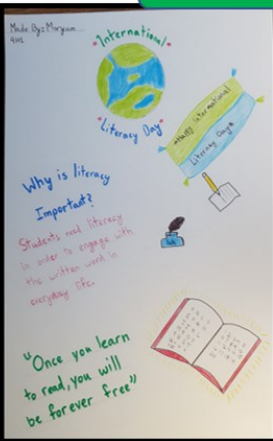 Made By: Maryam
4H1
International
Literacy Day
Happy International
Literacy Days
Why is literacy
Important?
Students need literacy
in order to engage with
the written word in
everyday life.
Ink
"Once you learn
to read, you will
be forever free"